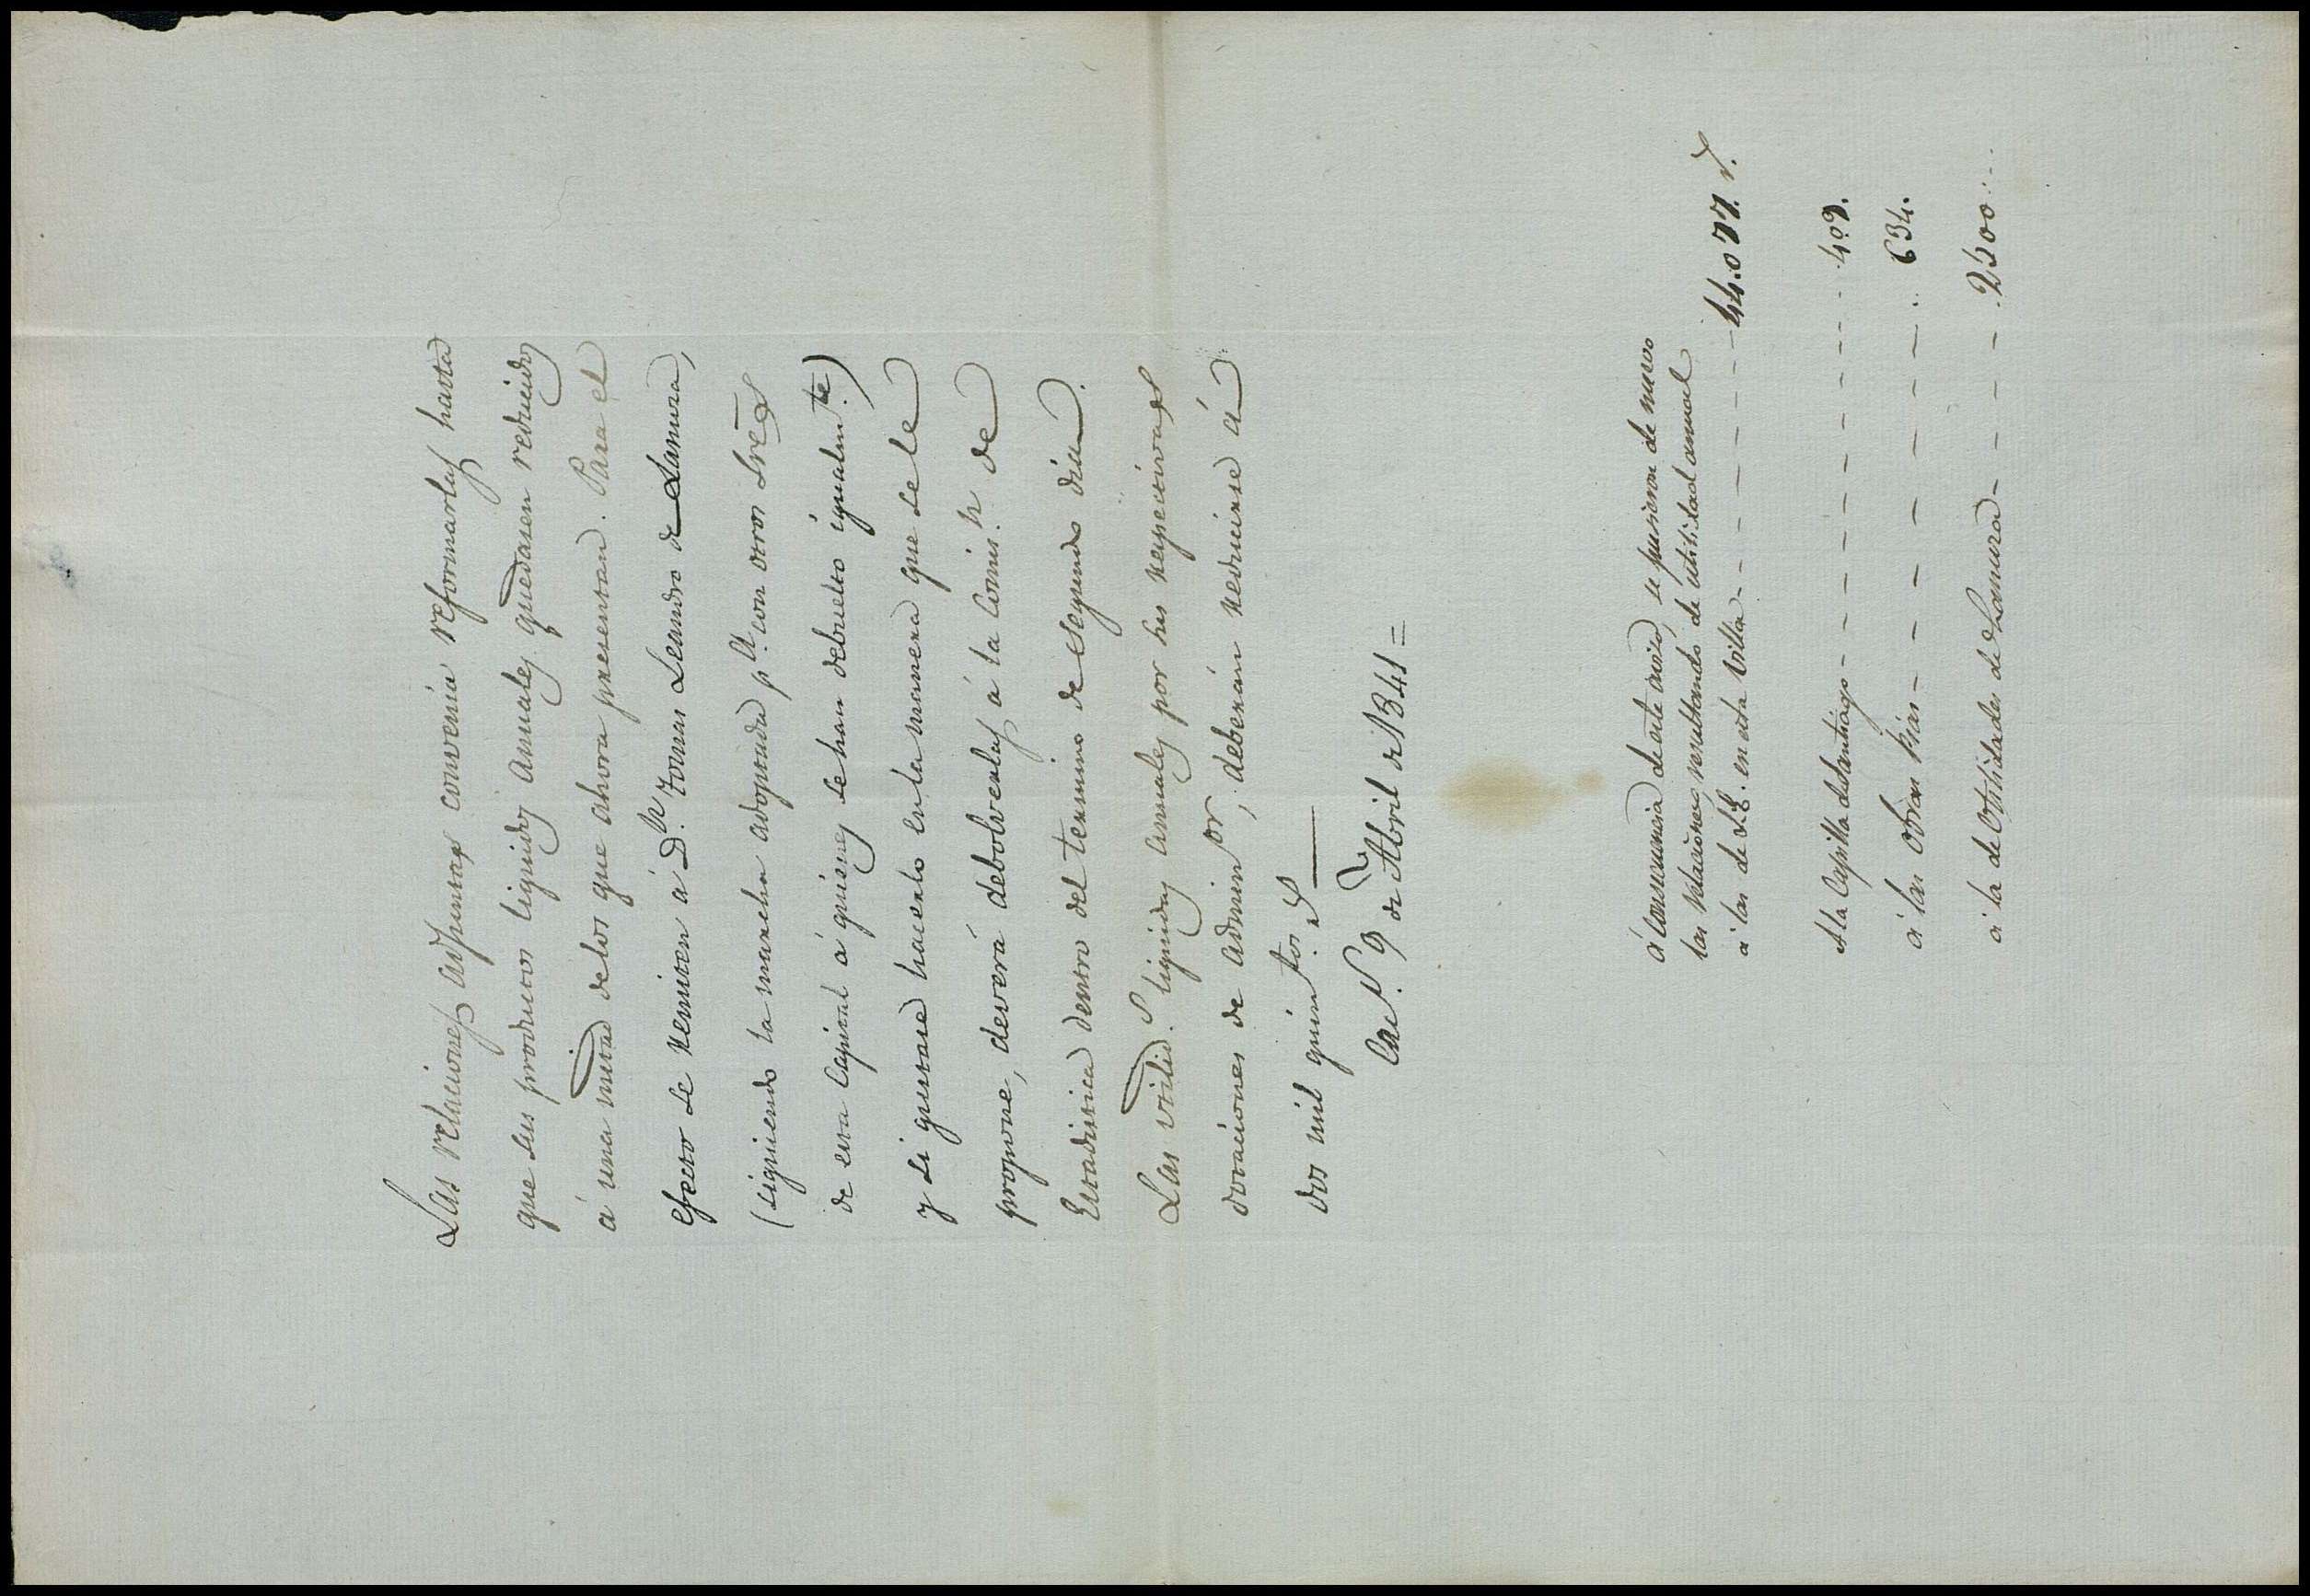 Las relaciones adjuntas convenia reformarlas hasta
que sus productos liquidos anuales quedasen reducidos
á una mitad delos que ahora presentan. Para el
efecto se remiten á D.n Tomas Leandro de Lamura,
(siguiendo la marcha adoptada p.a con otros Sres
de esta Capital á quienes se han debuelto igualm.te)
y si gustase hacerlo en la manera que se le
propone, deverá debolverlas á la Comis.n de
Estadistica dentro del termino de segundo dia.
Las utilid.s liquidas anuales por sus respectivas
dotaciones de administ.or, deberán reducirse á
dos mil quin.tos r.s
Cac.s 9 de Abril de 1841=
á consecuencia de este aviso, se pusieron de nuevo
las relaciones, resultando de utilidad annual
a las de S.E. en esta Villa - - - - - - - 44.077. r.
A la Capilla de Santiago - - - - - - - 409.
á las Obras Pias - - - - - - - 634.
á la de Utilidades de Lamura - - - - 2500...